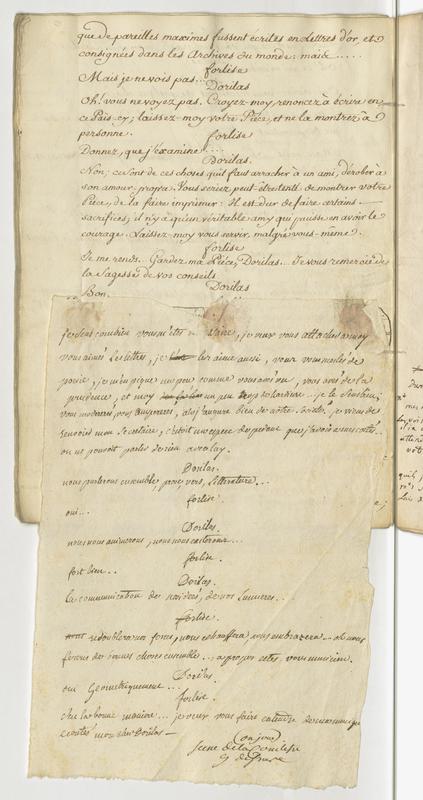 que de pareilles maximes fussent écrites en Lettres d'or, et
consignées dans les Archives du monde: mais.....
forlise
Mais je ne vois pas...
Dorilas
Oh! vous ne voyez pas. Croyez-moy, renoncez à écrire en
ce Païs-cy; laissez-moy votre Pièce, et ne la montrez à
personne.
forlise
Donnez, que j'examine....
Dorilas.
Non; ce sont de ces choses qu'il faut arracher à un ami, dérober à
son amour propre. Vous seriez peut-être tenté de montrer votre
Pièce, de la faire imprimer: Il est dur de faire certains
sacrifices; il n'y a qu'un véritable amy qui puisse en avoir le
courage. Laissez-moy vous servir, malgré vous-même.
forlise
Je me rends. Gardez ma Pièce, Dorilas... Je vous remercie de
la Sagesse de vos conseils.
Dorilas
Bon.
je sens combien vous m'êtes je veux vous attacher a moy
vous aimés les lettres, je les aime aussi, vous vous mêlés de
poesie, je m'en pique un peu comme vous avés vu, vous avés de la
prudence, et moy un peu trop
vous alors j'augure bien de notre je viens de
renvoier mon Secretaire, c'etoit une espece de pedant que j'avois a mes cotés
on ne pouvoit parler de rien avec luy.
Dorilas.
nous parlerons ensemble prose, vers, litterature...
forlise.
oui...
Dorilas.
nous nous animerons, nous nous
forlise.
fort bien...
Dorilas.
la communication de nos idées, de vos lumieres..
forlise.
redoublera nos forces, nous echauffera nous embrazera.. nous
ferons des choses ensemble... a propos etes vous musicien.
Dorilas.
oui Geometriquement...
forlise.
de la bonne maniere... je veux vous faire entendre
ecoutés mon cher Dorilas—
(on joue)
Scene de la Comtesse